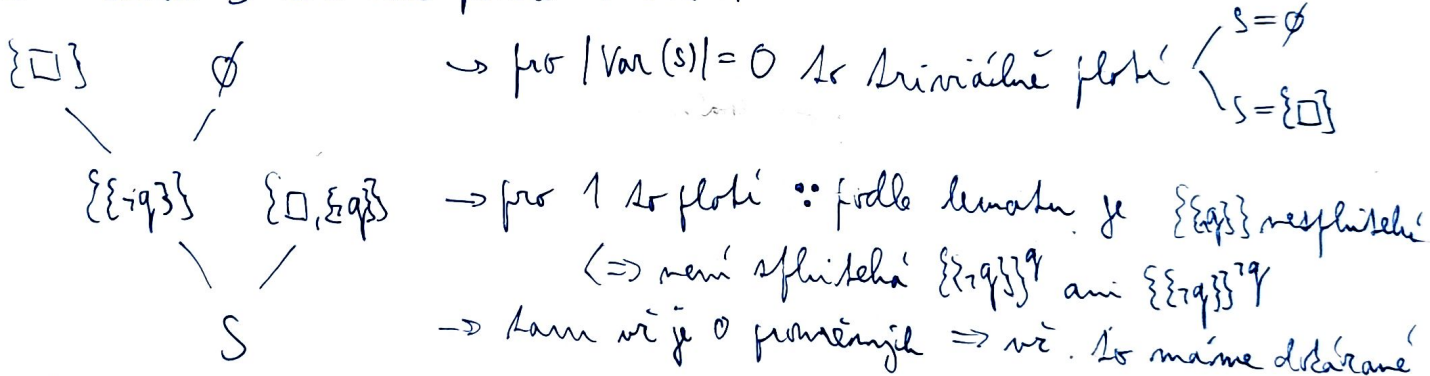 {□} ∅ → pro |Var(S)| = 0 to triviálně platí S=∅
S={□}
{{¬q}} {□,{q}} → pro 1 to platí ∵ podle lematu je {{q}} nesplnitelná
<=> není splnitelná {{¬q}}^q ani {{¬q}}^¬q
S → tam už je 0 proměnných => už to máme dokázané